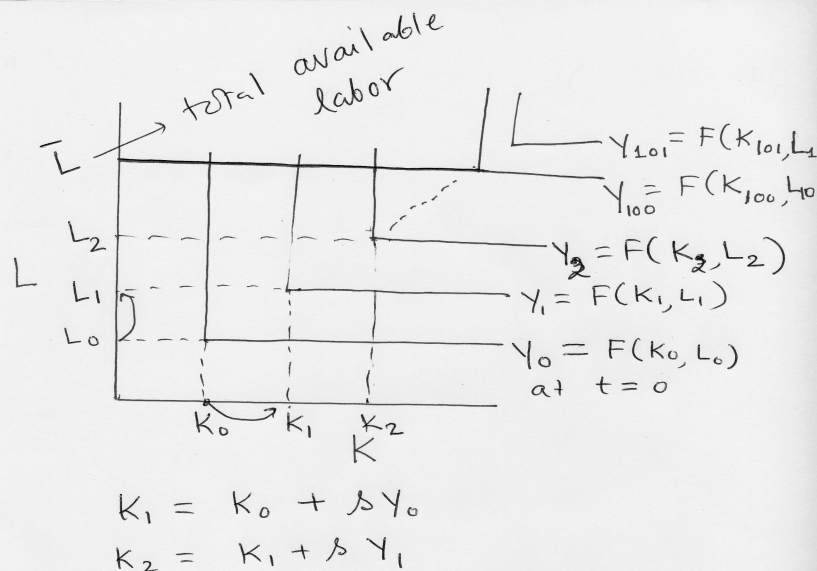 total available
labor
L̅
Y₁₀₁ = F(K₁₀₁, L₁
Y₁₀₀ = F(K₁₀₀, L₁₀
L₂
Y₂ = F(K₂, L₂)
L
L₁
Y₁ = F(K₁, L₁)
L₀
Y₀ = F(K₀, L₀)
at t = 0
K₀ K₁ K₂
K
K₁ = K₀ + sY₀
K₂ = K₁ + sY₁